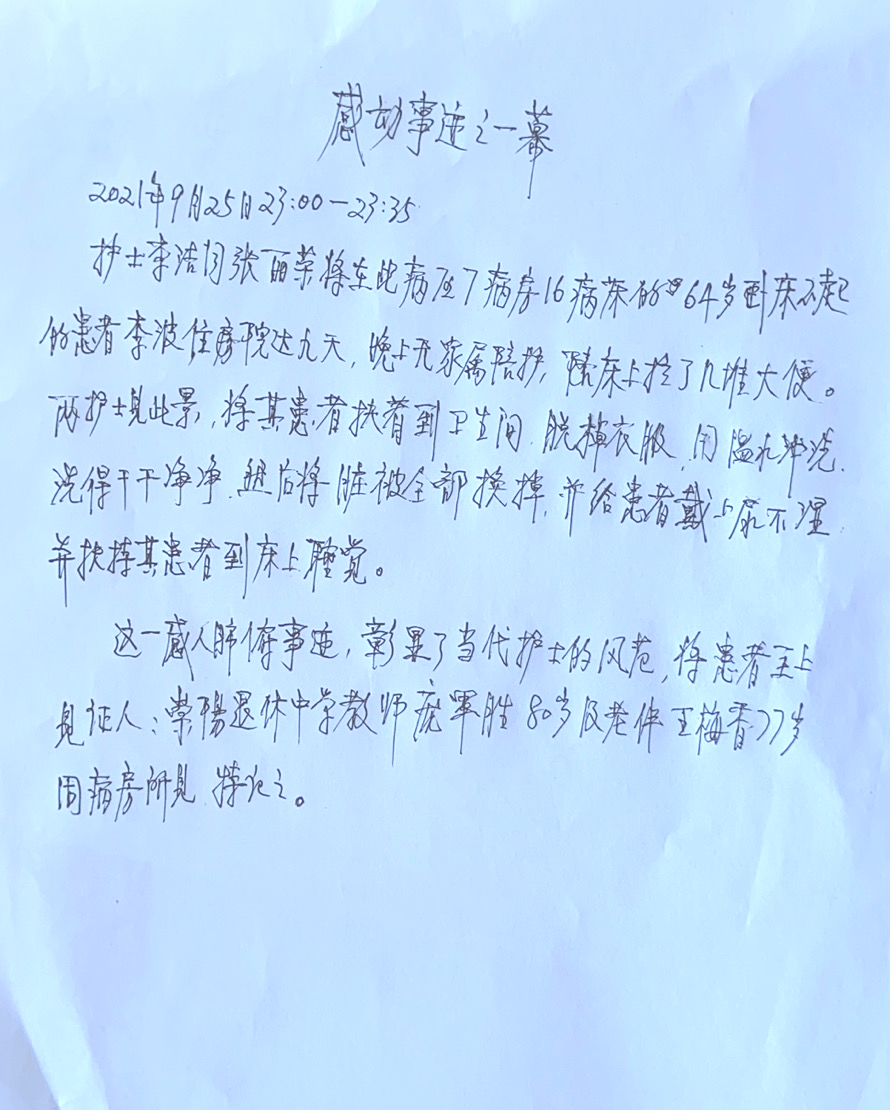 感动事迹之一幕
2021年9月25日23:00-23:35
护士李洁同张丽荣将在此病区7病房16病床的64岁卧床不起
的患者李波住院达九天,晚上无家属陪护,床上拉了几堆大便。
两护士见此景,将其患者扶着到卫生间,脱掉衣服,用温水冲洗,
洗得干干净净,然后将脏被全部换掉,并给患者戴上尿不湿,
并扶持其患者到床上睡觉。
这一感人肺腑事迹,彰显了当代护士的风范,将患者至上
见证人:荣阳退休中学教师 军胜80岁及老伴王梅香77岁
同病房所见,特记之。